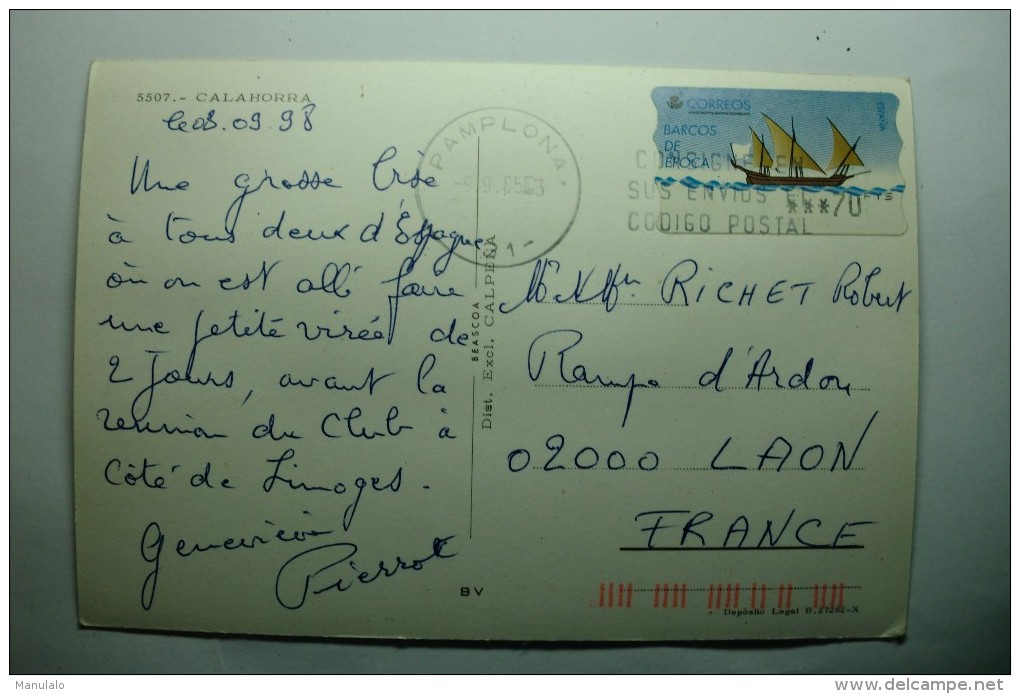 5507.- CALAHORRA
le 08.09.98
Une grosse bise
à tous deux d'Espagne
où on est allé faire
une petite virée de
2 Jours, avant la
reunion du Club à
Côté de Limoges.
Geneviève
Pierrot
PAMPLONA
CORREOS
ESPAÑA
BARCOS
DE
EPOCA
CONSIGNE EN
SUS ENVIOS EL
CODIGO POSTAL
***70
PTS
BEASCOA
Dist. Excl. CALPEÑA
RICHET Robert
Rampe d'Ardon
02000 LAON
FRANCE
BV
Depósito Legal B. 27282-X
Manulalo
www.delcampe.net